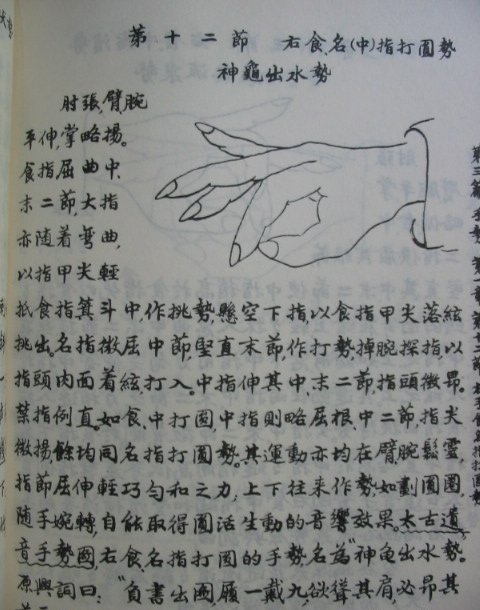 第十二節 右食、名(中)指打圓勢
神龜出水勢
肘張,臂,腕
平伸,掌略揚。
食指屈曲中、
末二節,大指
亦随着彎曲,
以指甲尖輕
抵食指箕斗中,作挑勢,懸空下指,以食指甲尖落絃
挑出。名指微屈中節,堅直末節作打勢,掉腕探指,以
指頭内面着絃,打入。中指伸其中、末二節,指頭微昂。
禁指例直。如食、中打圓,中指則略屈根、中二節,指尖
微揚,餘均同名指打圓勢。其運動亦均在臂,腕鬆靈,
指節屈伸輕巧匀和之力,上下往来作勢,如劃圓圈,
随手婉轉,自能取得圓活生動的音響效果。太古遺
音手勢圖,右食、名指打圓的手勢,名為"神龟出水勢"。
原興詞曰:"負書出圖,履一戴九,
其肩,必昂其
第三篇 手勢 第一章 第十二節 右手食名指打圓勢